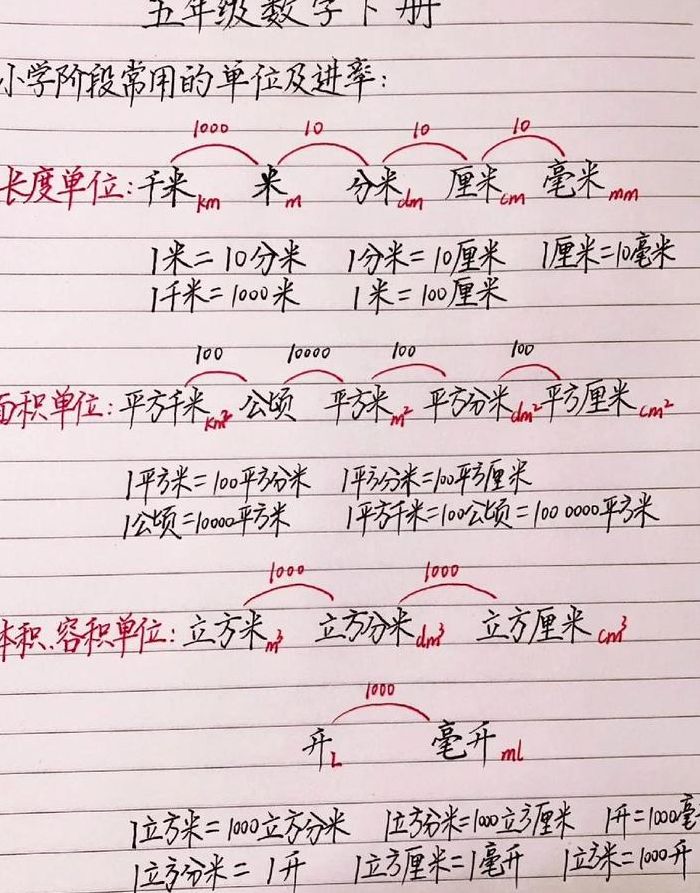 五年级数学下册
小学阶段常用的单位及进率:
1000 10 10 10
长度单位:千米km 米m 分米dm 厘米cm 毫米mm
1米=10分米 1分米=10厘米 1厘米=10毫米
1千米=1000米 1米=100厘米
100 10000 100 100
面积单位:平方千米km² 公顷 平方米m² 平方分米dm² 平方厘米cm²
1平方米=100平方分米 1平方分米=100平方厘米
1公顷=10000平方米 1平方千米=100公顷=100 0000平方米
1000 1000
体积、容积单位:立方米m³ 立方分米dm³ 立方厘米cm³
1000
升L 毫升ml
1立方米=1000立方分米 1立方分米=1000立方厘米 1升=1000毫
1立方分米=1升 1立方厘米=1毫升 1立方米=1000升